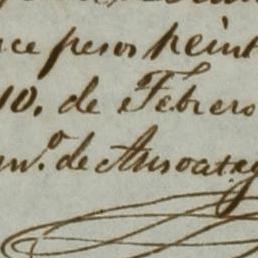 ce pesos veint
10. de Febrero
de Ansoateg